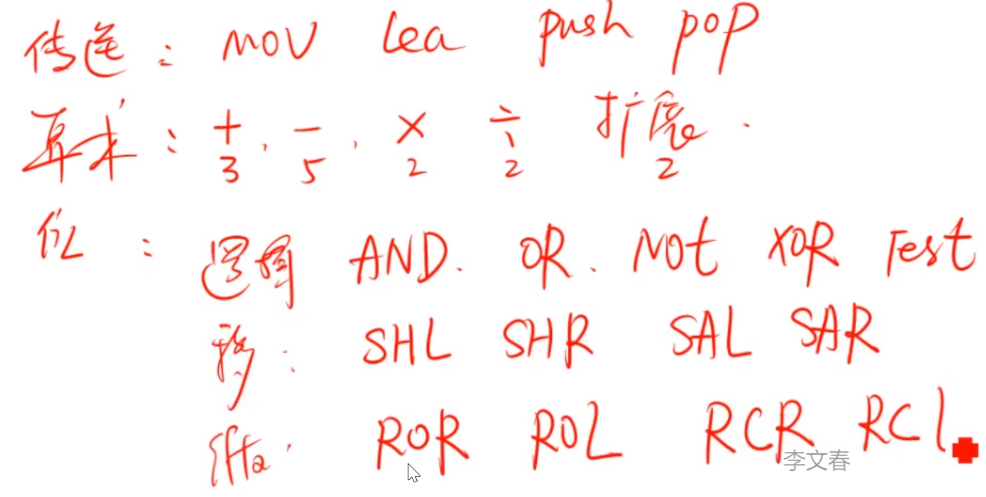 传送： MOV lea push pop
算术： + , - , × ÷ 扩展 .
3 5 2 2 2
位： 逻辑 AND. OR. Not XOR Test
移： SHL SHR SAL SAR
ROR ROL RCR RCL
李文春